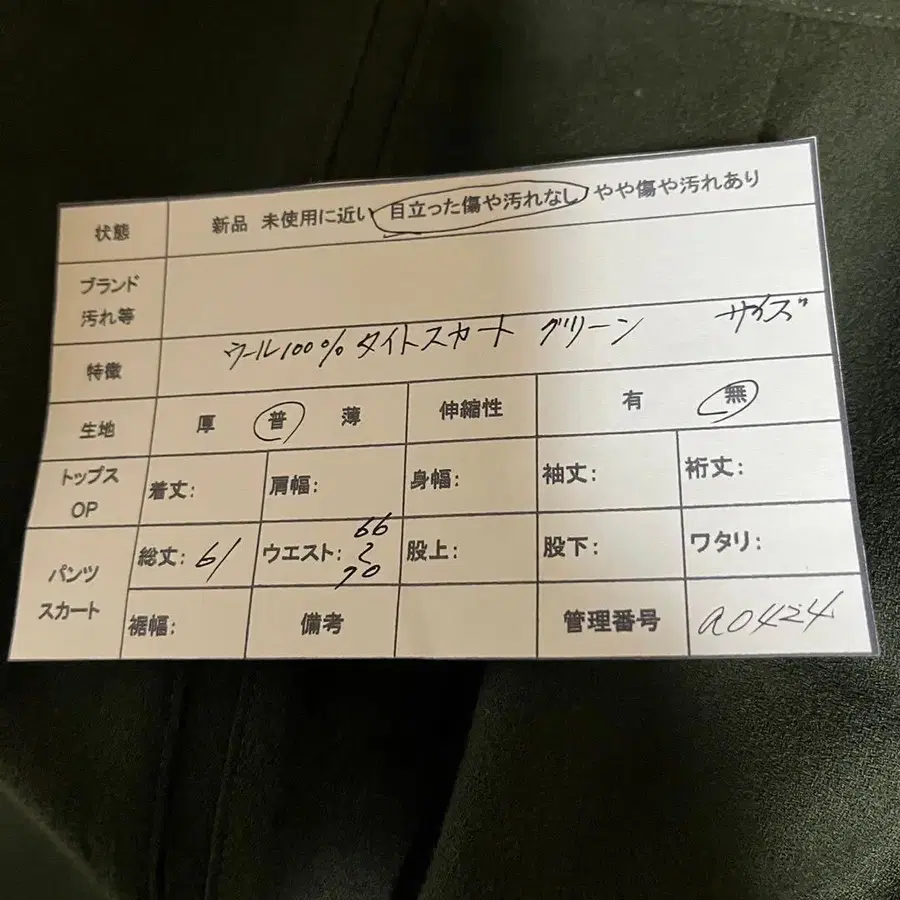 状態 新品 未使用に近い 目立った傷や汚れなし やや傷や汚れあり
ブランド
汚れ等
特徴 ウール100% タイトスカート グリーン サイズ
生地 厚 普 薄 伸縮性 有 無
トップス
OP
着丈: 肩幅: 身幅: 袖丈: 裄丈:
パンツ
スカート
総丈: 61 ウエスト: 66 〜 70 股上: 股下: ワタリ:
裾幅: 備考 管理番号 a0424